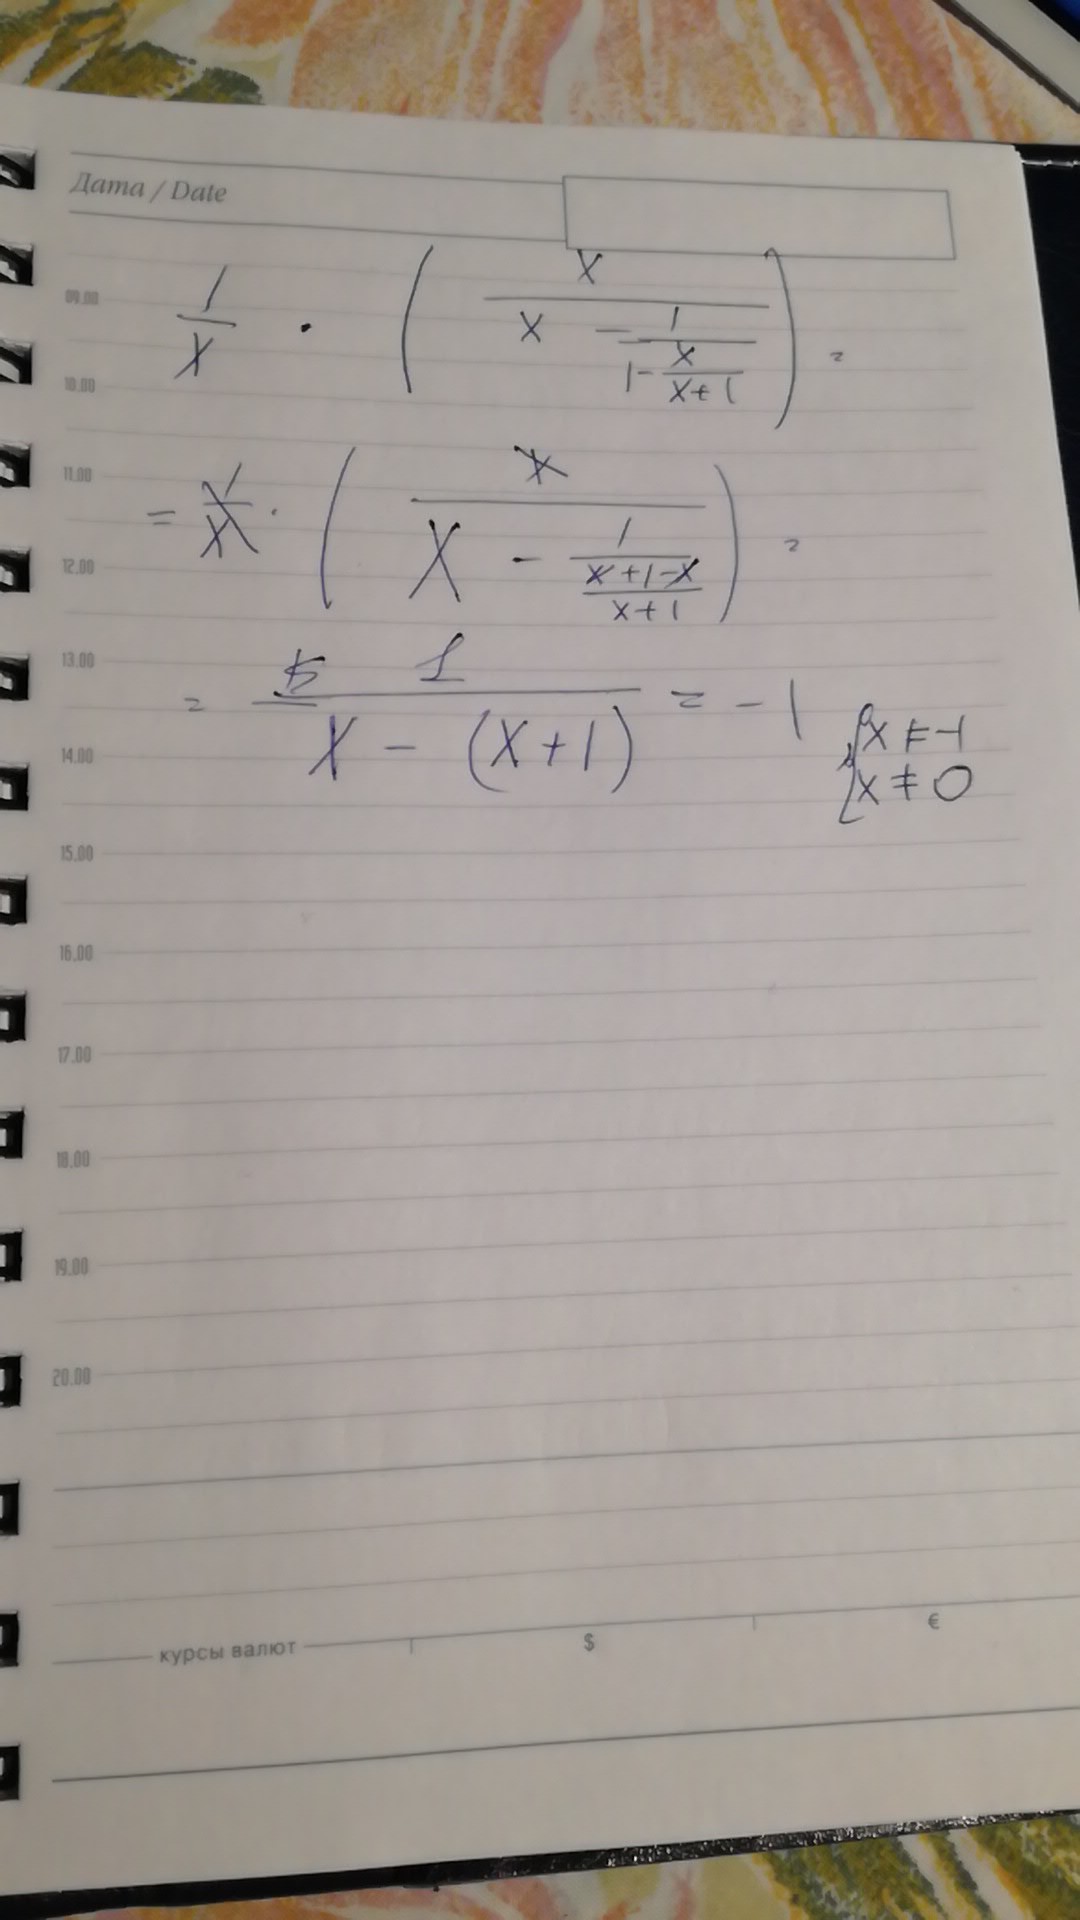 Дата / Date
09.00
1/x · ( x / (x - 1/(1 - x/(x+1))) ) =
10.00
11.00
= 1/x · ( x / (x - 1/((x+1-x)/(x+1))) ) =
12.00
13.00
= 1 / (x - (x+1)) = -1 { x ≠ -1
x ≠ 0
14.00
15.00
16.00
17.00
18.00
19.00
20.00
курсы валют $ €